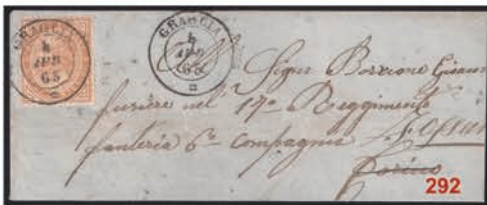 GRAGLIA
4
APR
65
GRAGLIA
4
APR
65
Signr Borrione
furiere nel 17o Reggimento
fanteria 6a compagnia
Torino
292